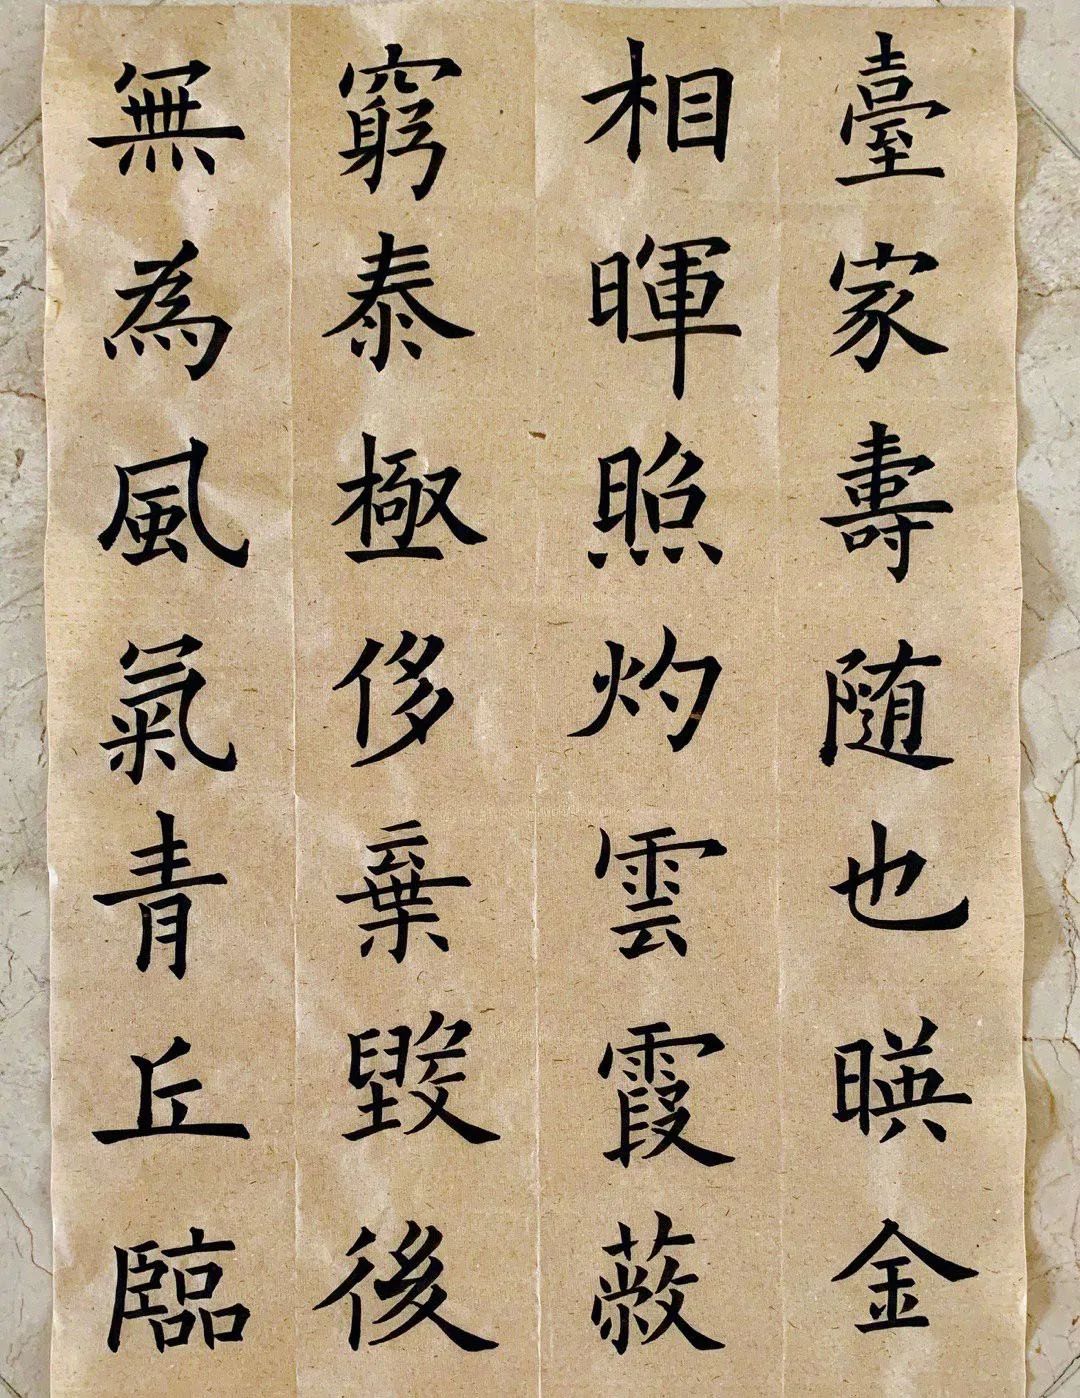 臺家壽随也暎金
相暉照灼雲霞蔽
窮泰極侈棄毀後
無為風氣青丘臨